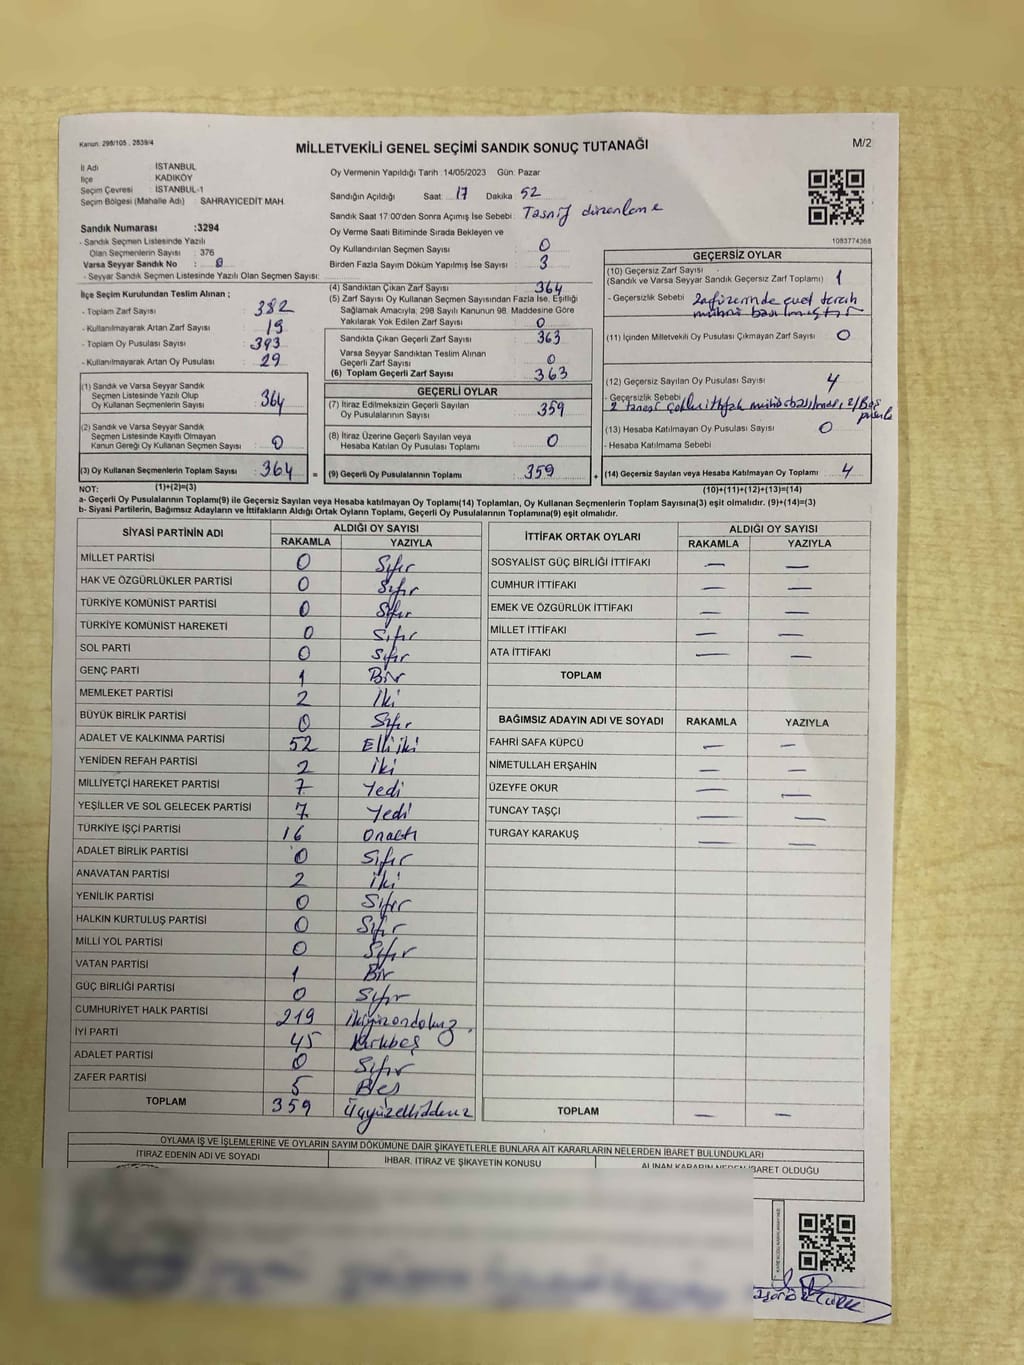 Kanun. 298/105 . 2839/4
MİLLETVEKİLİ GENEL SEÇİMİ SANDIK SONUÇ TUTANAĞI
M/2
İl Adı : İSTANBUL
İlçe : KADIKÖY
Seçim Çevresi : İSTANBUL-1
Seçim Bölgesi (Mahalle Adı) : SAHRAYICEDİT MAH.
Sandık Numarası :3294
- Sandık Seçmen Listesinde Yazılı
Olan Seçmenlerin Sayısı : 376
Varsa Seyyar Sandık No : 0
- Seyyar Sandık Seçmen Listesinde Yazılı Olan Seçmen Sayısı:
Oy Vermenin Yapıldığı Tarih :14/05/2023 Gün: Pazar
Sandığın Açıldığı Saat 17 Dakika 52
Sandık Saat 17:00'den Sonra Açımış İse Sebebi : Tasnif düzenleme
Oy Verme Saati Bitiminde Sırada Bekleyen ve
Oy Kullandırılan Seçmen Sayısı : 0
Birden Fazla Sayım Döküm Yapılmış İse Sayısı : 3
1083774368
İlçe Seçim Kurulundan Teslim Alınan ;
- Toplam Zarf Sayısı : 382
- Kullanılmayarak Artan Zarf Sayısı : 19
- Toplam Oy Pusulası Sayısı : 393
- Kullanılmayarak Artan Oy Pusulası : 29
(1) Sandık ve Varsa Seyyar Sandık
Seçmen Listesinde Yazılı Olup
Oy Kullanan Seçmenlerin Sayısı : 364
(2) Sandık ve Varsa Seyyar Sandık
Seçmen Listesinde Kayıtlı Olmayan
Kanun Gereği Oy Kullanan Seçmen Sayısı : 0
(3) Oy Kullanan Seçmenlerin Toplam Sayısı : 364
(4) Sandıktan Çıkan Zarf Sayısı : 364
(5) Zarf Sayısı Oy Kullanan Seçmen Sayısından Fazla İse, Eşitliği
Sağlamak Amacıyla, 298 Sayılı Kanunun 98. Maddesine Göre
Yakılarak Yok Edilen Zarf Sayısı : 0
Sandıkta Çıkan Geçerli Zarf Sayısı : 363
Varsa Seyyar Sandıktan Teslim Alınan
Geçerli Zarf Sayısı : 0
(6) Toplam Geçerli Zarf Sayısı : 363
GEÇERLİ OYLAR
(7) İtiraz Edilmeksizin Geçerli Sayılan
Oy Pusulalarının Sayısı : 359
(8) İtiraz Üzerine Geçerli Sayılan veya
Hesaba Katılan Oy Pusulası Toplamı : 0
= (9) Geçerli Oy Pusulalarının Toplamı : 359
GEÇERSİZ OYLAR
(10) Geçersiz Zarf Sayısı
(Sandık ve Varsa Seyyar Sandık Geçersiz Zarf Toplamı) : 1
- Geçersizlik Sebebi : Zarf üzerinde evet tercih
mührü basılmıştır
(11) İçinden Milletvekili Oy Pusulası Çıkmayan Zarf Sayısı : 0
(12) Geçersiz Sayılan Oy Pusulası Sayısı : 4
- Geçersizlik Sebebi :
(13) Hesaba Katılmayan Oy Pusulası Sayısı : 0
- Hesaba Katılmama Sebebi :
+ (14) Geçersiz Sayılan veya Hesaba Katılmayan Oy Toplamı : 4
NOT: (1)+(2)=(3)
(10)+(11)+(12)+(13)=(14)
a- Geçerli Oy Pusulalarının Toplamı(9) ile Geçersiz Sayılan veya Hesaba katılmayan Oy Toplamı(14) Toplamları, Oy Kullanan Seçmenlerin Toplam Sayısına(3) eşit olmalıdır. (9)+(14)=(3)
b- Siyasi Partilerin, Bağımsız Adayların ve İttifakların Aldığı Ortak Oyların Toplamı, Geçerli Oy Pusulalarının Toplamına(9) eşit olmalıdır.
SİYASİ PARTİNİN ADI ALDIĞI OY SAYISI
RAKAMLA YAZIYLA
MİLLET PARTİSİ 0 Sıfır
HAK VE ÖZGÜRLÜKLER PARTİSİ 0 Sıfır
TÜRKİYE KOMÜNİST PARTİSİ 0 Sıfır
TÜRKİYE KOMÜNİST HAREKETİ 0 Sıfır
SOL PARTİ 0 Sıfır
GENÇ PARTİ 1 Bir
MEMLEKET PARTİSİ 2 İki
BÜYÜK BİRLİK PARTİSİ 0 Sıfır
ADALET VE KALKINMA PARTİSİ 52 Elliiki
YENİDEN REFAH PARTİSİ 2 İki
MİLLİYETÇİ HAREKET PARTİSİ 7 Yedi
YEŞİLLER VE SOL GELECEK PARTİSİ 7 Yedi
TÜRKİYE İŞÇİ PARTİSİ 16 Onaltı
ADALET BİRLİK PARTİSİ 0 Sıfır
ANAVATAN PARTİSİ 2 İki
YENİLİK PARTİSİ 0 Sıfır
HALKIN KURTULUŞ PARTİSİ 0 Sıfır
MİLLİ YOL PARTİSİ 0 Sıfır
VATAN PARTİSİ 1 Bir
GÜÇ BİRLİĞİ PARTİSİ 0 Sıfır
CUMHURİYET HALK PARTİSİ 219 İkiyüzondokuz
İYİ PARTİ 45 Kırkbeş
ADALET PARTİSİ 0 Sıfır
ZAFER PARTİSİ 5 Beş
TOPLAM 359 Üçyüzellidokuz
İTTİFAK ORTAK OYLARI ALDIĞI OY SAYISI
RAKAMLA YAZIYLA
SOSYALİST GÜÇ BİRLİĞİ İTTİFAKI — —
CUMHUR İTTİFAKI — —
EMEK VE ÖZGÜRLÜK İTTİFAKI — —
MİLLET İTTİFAKI — —
ATA İTTİFAKI — —
TOPLAM
BAĞIMSIZ ADAYIN ADI VE SOYADI RAKAMLA YAZIYLA
FAHRİ SAFA KÜPCÜ — —
NİMETULLAH ERŞAHİN — —
ÜZEYFE OKUR — —
TUNCAY TAŞÇI — —
TURGAY KARAKUŞ — —
TOPLAM — —
OYLAMA İŞ VE İŞLEMLERİNE VE OYLARIN SAYIM DÖKÜMÜNE DAİR ŞİKAYETLERLE BUNLARA AİT KARARLARIN NELERDEN İBARET BULUNDUKLARI
İTİRAZ EDENİN ADI VE SOYADI İHBAR, İTİRAZ VE ŞİKAYETİN KONUSU ALINAN KARARIN NEDEN İBARET OLDUĞU